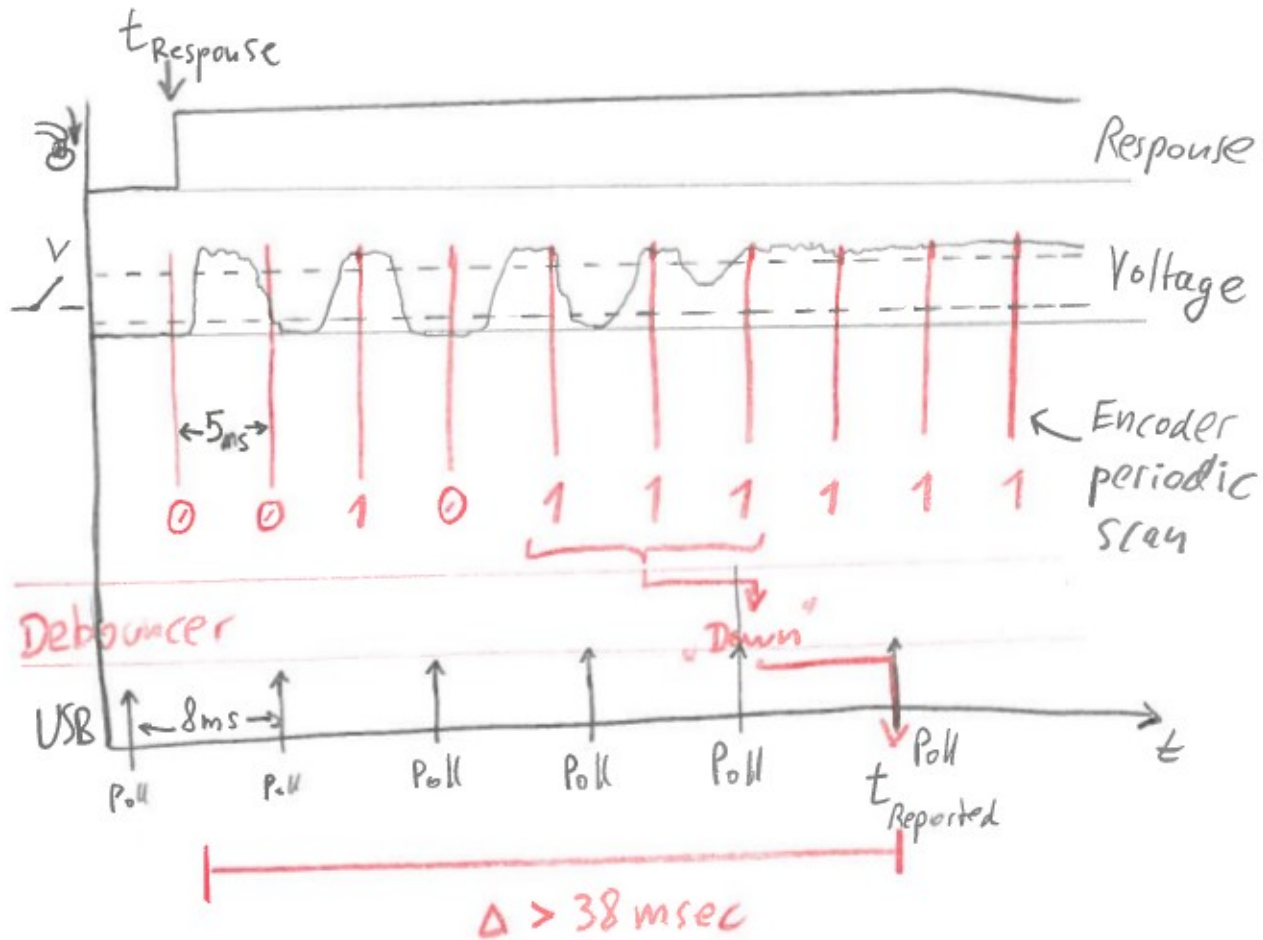 t Response
Response
V
Voltage
5ms
Encoder
periodic
scan
0 0 1 0 1 1 1 1 1 1
Debouncer
„Down“
USB
8ms
Poll Poll Poll Poll Poll Poll
t
t Reported
Δ > 38 msec